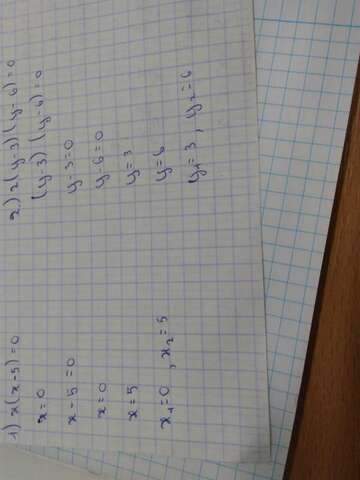 1) x(x-5)=0
x=0
x-5=0
x=0
x=5
x₁=0, x₂=5
2) 2(y-3)(y-6)=0
(y-3)·(y-6)=0
y-3=0
y-6=0
y=3
y=6
y₁=3, y₂=6